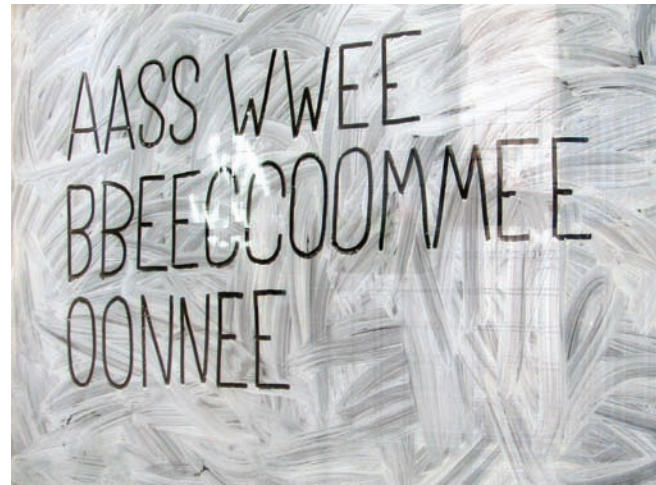 AASS WWEE
BBEECCOOMMEE
OONNEE